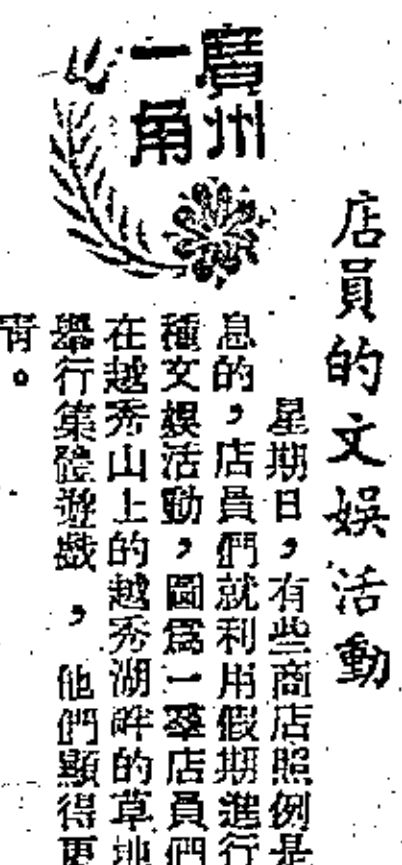 廣州
一角
店員的文娛活動
星期日，有些商店照例是
息的，店員們就利用假期進行
種文娛活動，圖爲一羣店員們
在越秀山上的越秀湖畔的草地
舉行集體遊戲，他們顯得更
青。